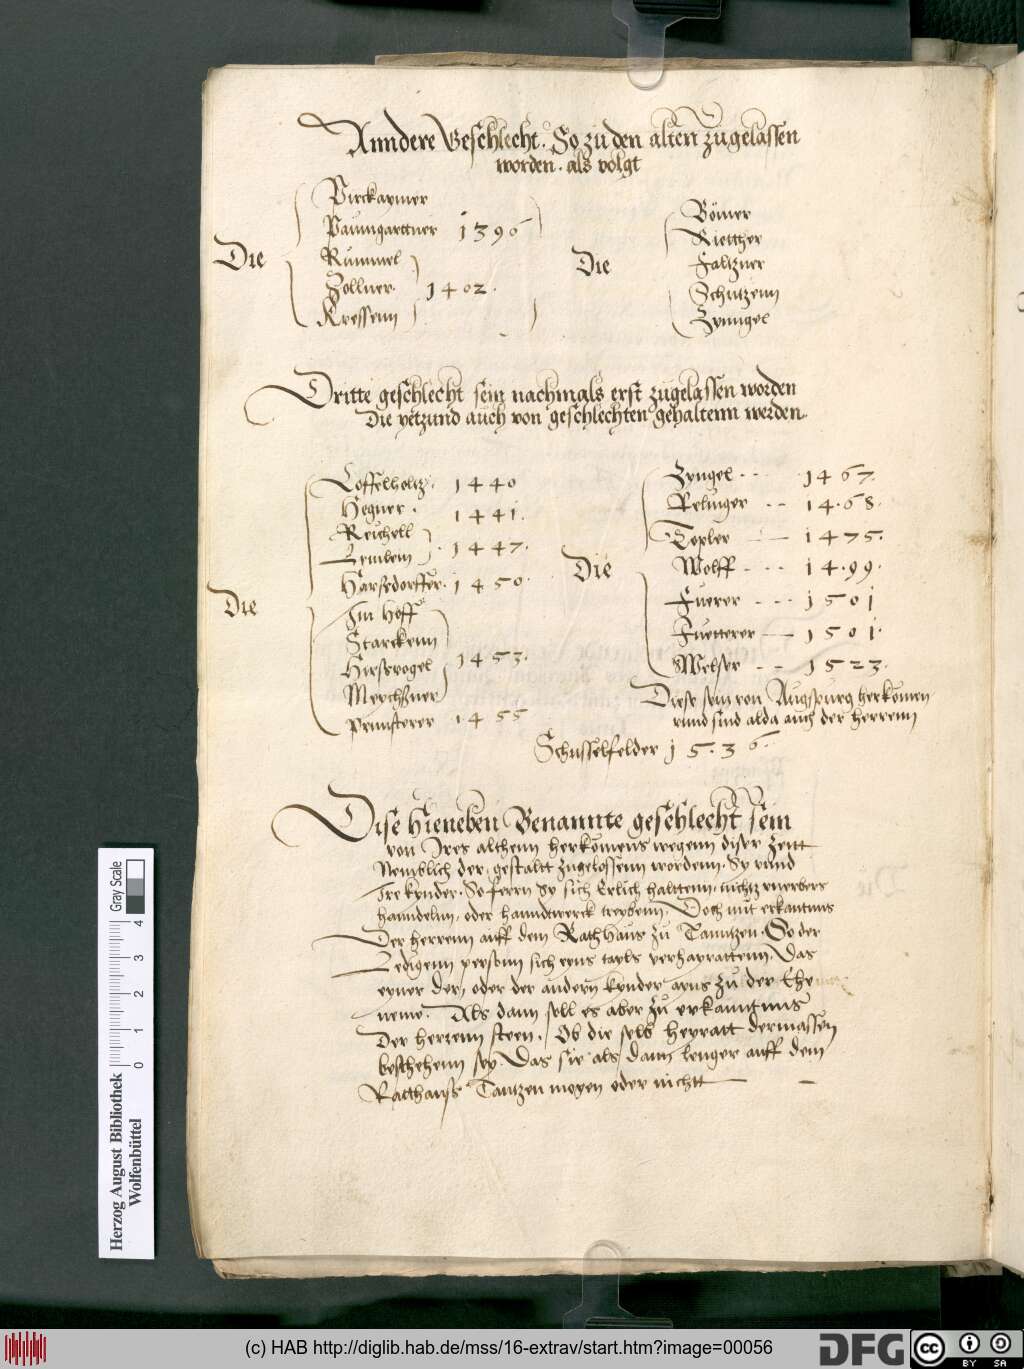 Anndere Geschlecht. So zu den alten zugelassen
worden. als volgt
Die
Pirckaymer
Paumgarttner 1396
Rummel
Zollner. 1402.
Kressenn
Die
Bömer
Rietther
Faltzner
Schutzenn
Zynngel
Dritte geschlecht sein nachmals erst zugelassen worden
Die yetzund auch von geschlechten gehaltenn werden.
Die
Loffelholtz. 1440
Hegner. 1441.
Reichell
Lemlein 1447.
Harsdorffer. 1450.
Im Hoff
Starckenn
Hirsvogel 1453.
Merchßner
Prünsterer 1455
Die
Zyngel 1467.
Relinger 1468.
Topler 1475.
Wolff 1499.
Fuerer 1501
Fuetterer 1501.
Welser 1523.
Diese sein von Augspurg herkomen
vnnd sind alda auch der herrenn
Schusselfelder 1536.
Dise hieneben Benannte geschlecht sein
von Ires althenn herkomens wegenn diser zeitt
Nemblich der gestaltt zugelossenn wordenn. Sy vnnd
Ire kynder. So ferrn sy sich Erlich halttenn. nichtz vnerbers
hanndeln, oder hanndtwerck treybenn. Doch mit erkantnus
Der herrenn auff dem Rathhaus zu Tanntzen. So der
Ledigenn personn sich eyns tayls verhayrattenn. Das
eyner der, oder der andern kynder ayns zu der Ehe
neme. Als dann soll es aber zu erkanntnus
Der herrenn steen. Ob die selb heyratt dermassen
beschehenn sey. Das sie als dann lenger auff dem
Ratthauß Tantzen mogen oder nichtt
Herzog August Bibliothek
Wolfenbüttel
0 1 2 3 4
Gray Scale
(c) HAB http://diglib.hab.de/mss/16-extrav/start.htm?image=00056
DFG
cc BY SA